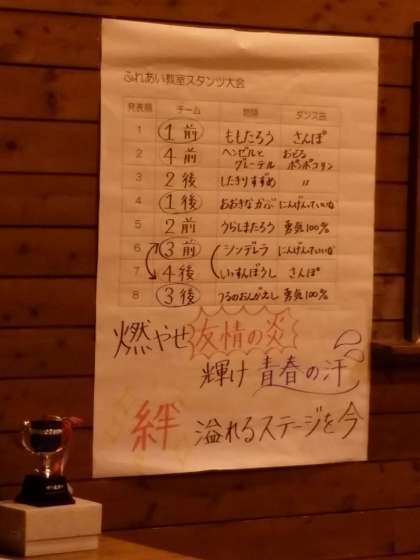 ふれあい教室スタンツ大会
発表順 チーム 物語 ダンス曲
1 1前 ももたろう さんぽ
2 4前 ヘンゼルとグレーテル おどるポンポコリン
3 2後 したきりすずめ 〃
4 1後 おおきなかぶ にんげんっていいな
5 2前 うらしまたろう 勇気100%
6 3前 シンデレラ にんげんっていいな
7 4後 いっすんぼうし さんぽ
8 3後 つるのおんがえし 勇気100%
燃やせ 友情の炎
輝け 青春の汗
絆 溢れるステージを今